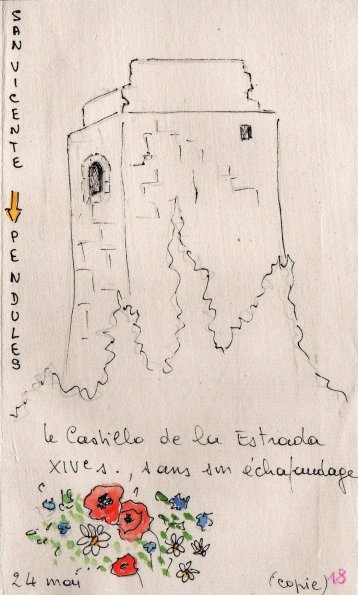 SAN VICENTE
PENDULES
Le Castillo de la Estrada
XIVe s., sans son échafaudage
24 maï
(copie) 18